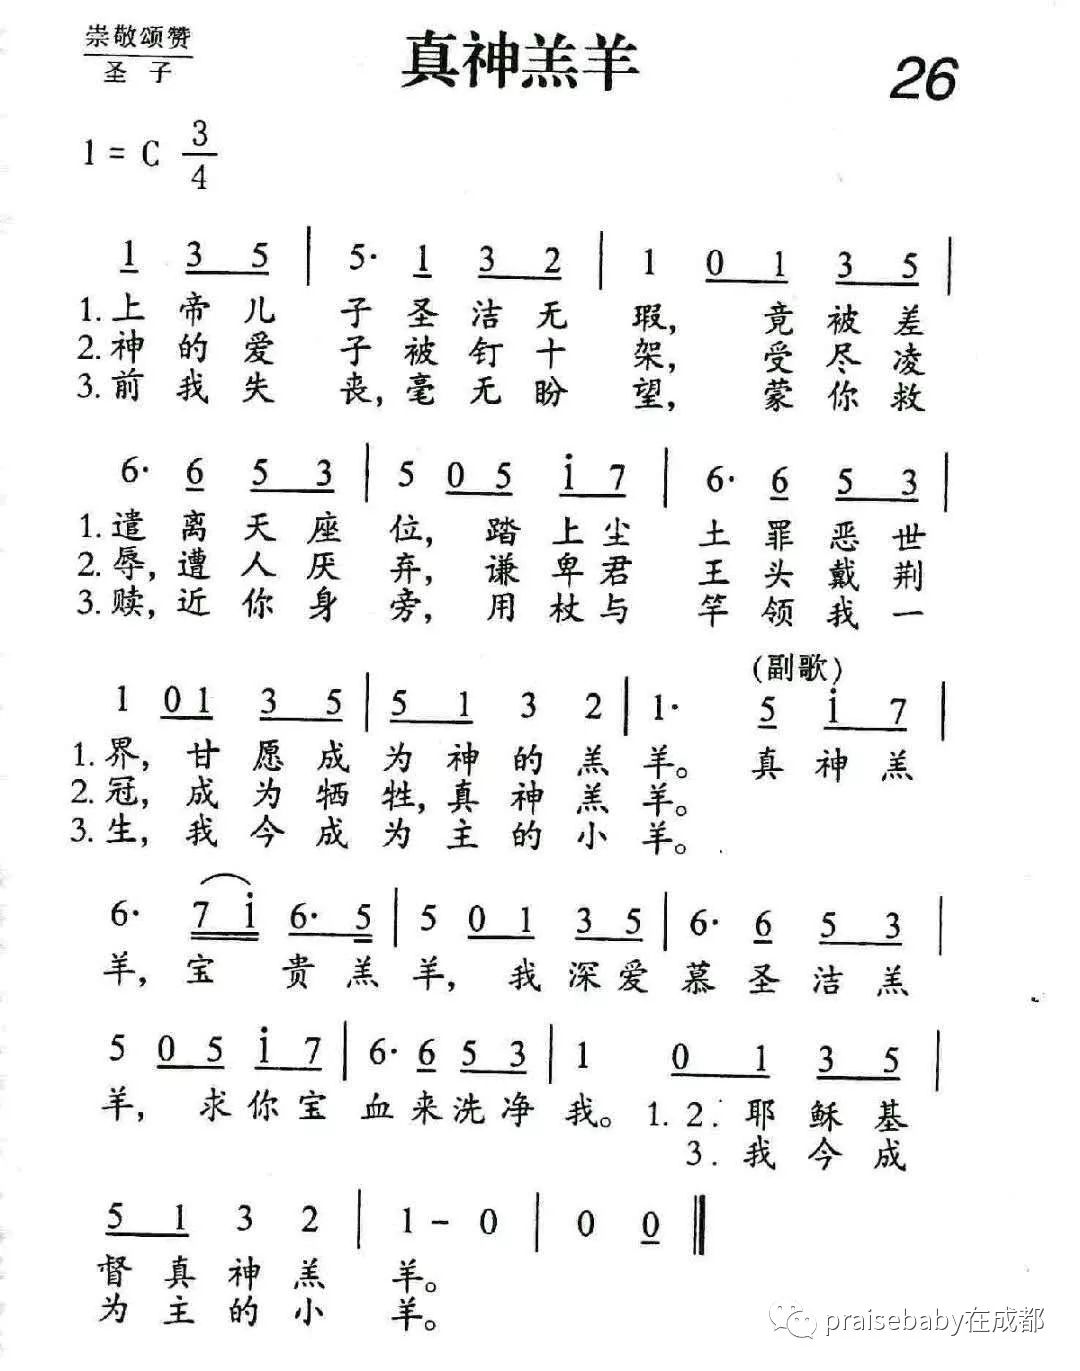 崇敬颂赞
圣子
真神羔羊
26
1 = C 3/4
1 3 5 | 5· 1 3 2 | 1 0 1 3 5 |
1. 上帝儿 子圣洁无 瑕, 竟被差
2. 神的爱 子被钉十 架, 受尽凌
3. 前我失 丧, 毫无盼 望, 蒙你救
6· 6 5 3 | 5 0 5 i 7 | 6· 6 5 3 |
1. 遣离天座 位, 踏上尘 土罪恶世
2. 辱, 遭人厌 弃, 谦卑君 王头戴荆
3. 赎, 近你身 旁, 用杖与 竿领我一
(副歌)
1 0 1 3 5 | 5 1 3 2 | 1· 5 i 7 |
1. 界, 甘愿成 为神的羔 羊。 真神羔
2. 冠, 成为牺 牲, 真神羔 羊。
3. 生, 我今成 为主的小 羊。
6· 7 i 6· 5 | 5 0 1 3 5 | 6· 6 5 3 |
羊, 宝 贵羔 羊, 我深爱 慕圣洁羔
5 0 5 i 7 | 6· 6 5 3 | 1 0 1 3 5 |
羊, 求你宝 血来洗净 我。 1. 2. 耶稣基
3. 我今成
5 1 3 2 | 1 - 0 | 0 0 ‖
督真神羔 羊。
为主的小 羊。
praisebaby在成都